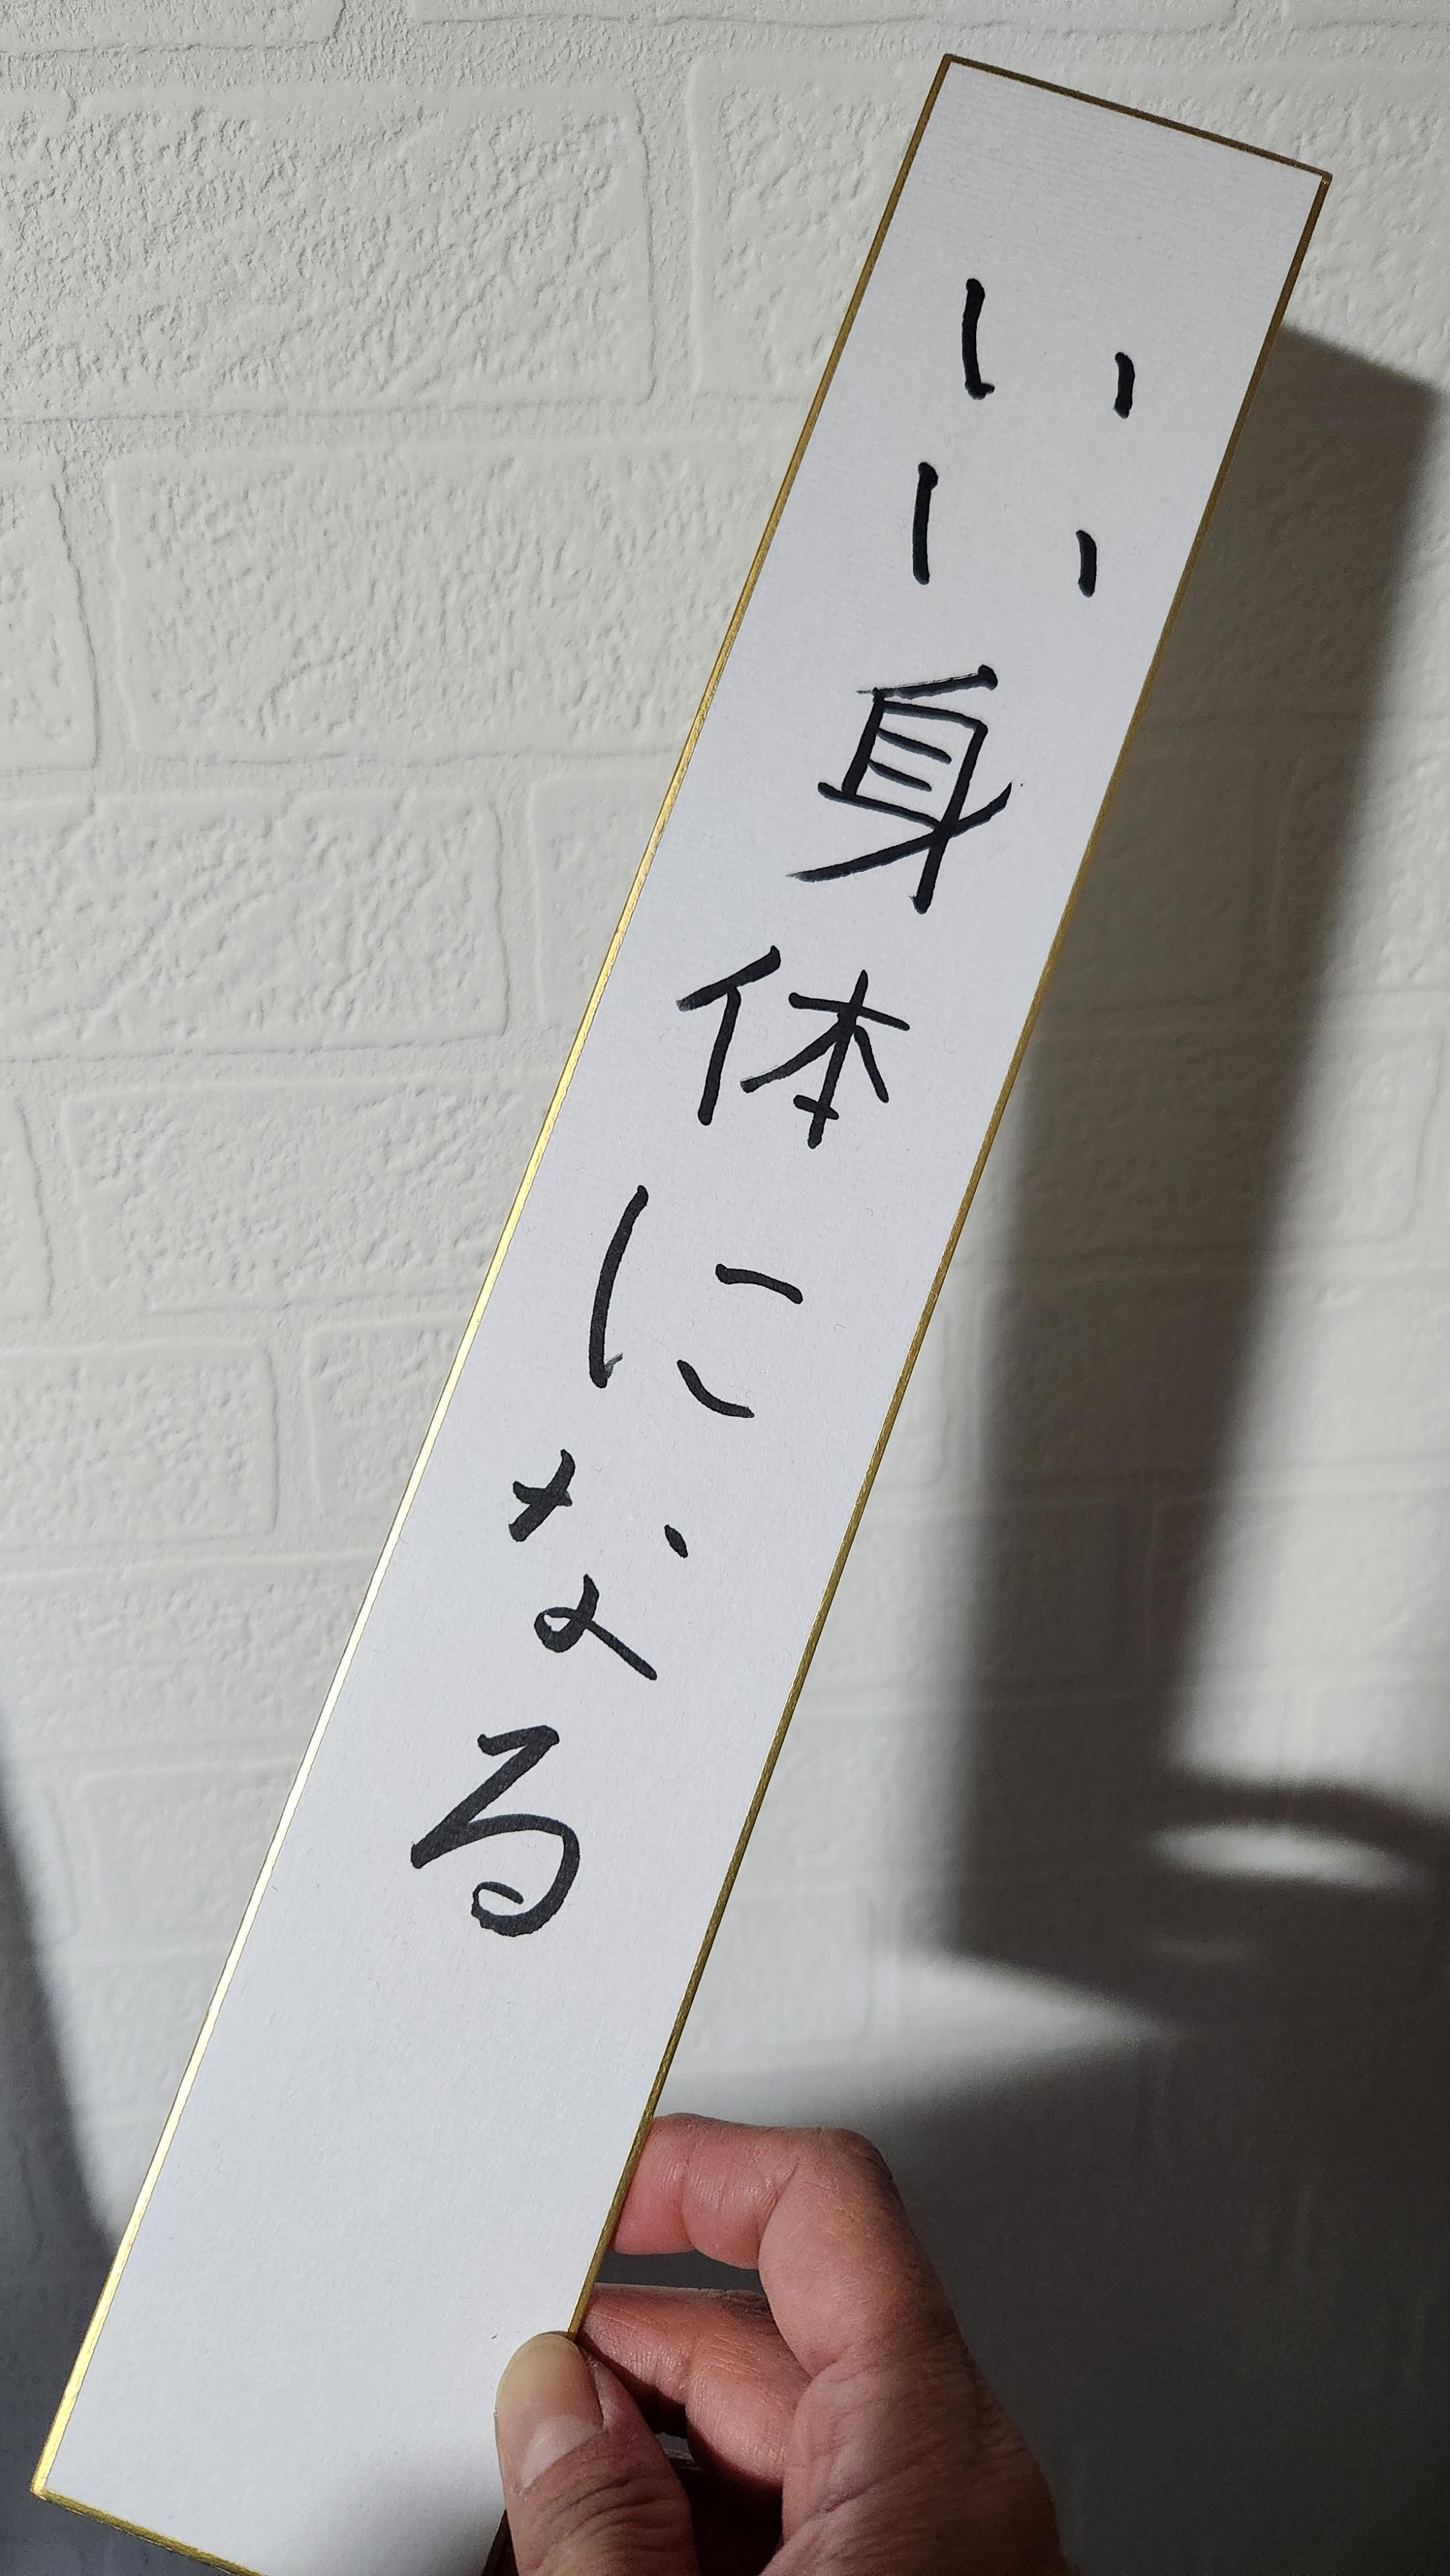 いい身体になる